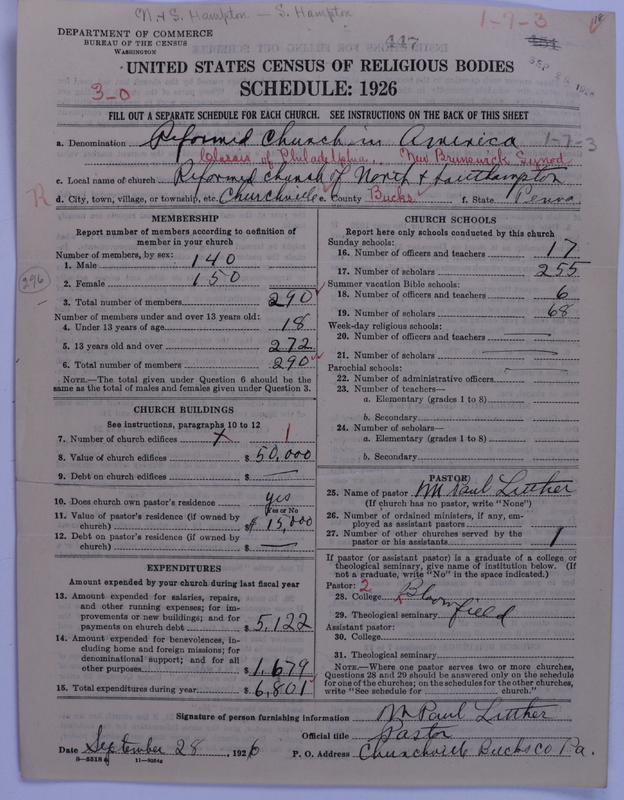 N. & S. Hampton — S. Hampton
1-7-3
117
DEPARTMENT OF COMMERCE
BUREAU OF THE CENSUS
WASHINGTON
UNITED STATES CENSUS OF RELIGIOUS BODIES
3-0
SCHEDULE: 1926
FILL OUT A SEPARATE SCHEDULE FOR EACH CHURCH. SEE INSTRUCTIONS ON THE BACK OF THIS SHEET
a. Denomination Reformed Church in America 1-7-3
Classis of Philadelphia. New Brunswick Synod
c. Local name of church Reformed Church of North & Southampton
d. City, town, village, or township, etc. Churchville e. County Bucks f. State Penna
MEMBERSHIP
Report number of members according to definition of member in your church
Number of members, by sex:
1. Male 140
2. Female 150
296
3. Total number of members 290
Number of members under and over 13 years old:
4. Under 13 years of age 18
5. 13 years old and over 272
6. Total number of members 290
NOTE.—The total given under Question 6 should be the same as the total of males and females given under Question 3.
CHURCH BUILDINGS
See instructions, paragraphs 10 to 12
7. Number of church edifices 1
8. Value of church edifices $ 50,000
9. Debt on church edifices $ —
10. Does church own pastor's residence yes
(Yes or No
11. Value of pastor's residence (if owned by church) $ 15,000
12. Debt on pastor's residence (if owned by church) $ —
EXPENDITURES
Amount expended by your church during last fiscal year
13. Amount expended for salaries, repairs, and other running expenses; for improvements or new buildings; and for payments on church debt $ 5,122
14. Amount expended for benevolences, including home and foreign missions; for denominational support; and for all other purposes $ 1,679
15. Total expenditures during year $ 6,801
CHURCH SCHOOLS
Report here only schools conducted by this church
Sunday schools:
16. Number of officers and teachers 17
17. Number of scholars 255
Summer vacation Bible schools:
18. Number of officers and teachers 6
19. Number of scholars 68
Week-day religious schools:
20. Number of officers and teachers —
21. Number of scholars —
Parochial schools:
22. Number of administrative officers —
23. Number of teachers—
a. Elementary (grades 1 to 8)
b. Secondary
24. Number of scholars—
a. Elementary (grades 1 to 8)
b. Secondary
PASTOR
25. Name of pastor M Paul Luther
(If church has no pastor, write "None")
26. Number of ordained ministers, if any, employed as assistant pastors
27. Number of other churches served by the pastor or his assistants 1
If pastor (or assistant pastor) is a graduate of a college or theological seminary, give name of institution below. (If not a graduate, write "No" in the space indicated.)
Pastor: 2
28. College Bloomfield
29. Theological seminary
Assistant pastor:
30. College
31. Theological seminary
NOTE.—Where one pastor serves two or more churches, Questions 28 and 29 should be answered only on the schedule for one of the churches; on the schedules for the other churches, write "See schedule for church."
Signature of person furnishing information M Paul Luther
Official title Pastor
Date September 28, 1926 P. O. Address Churchville Bucks co Pa.
8-5518 11-9354